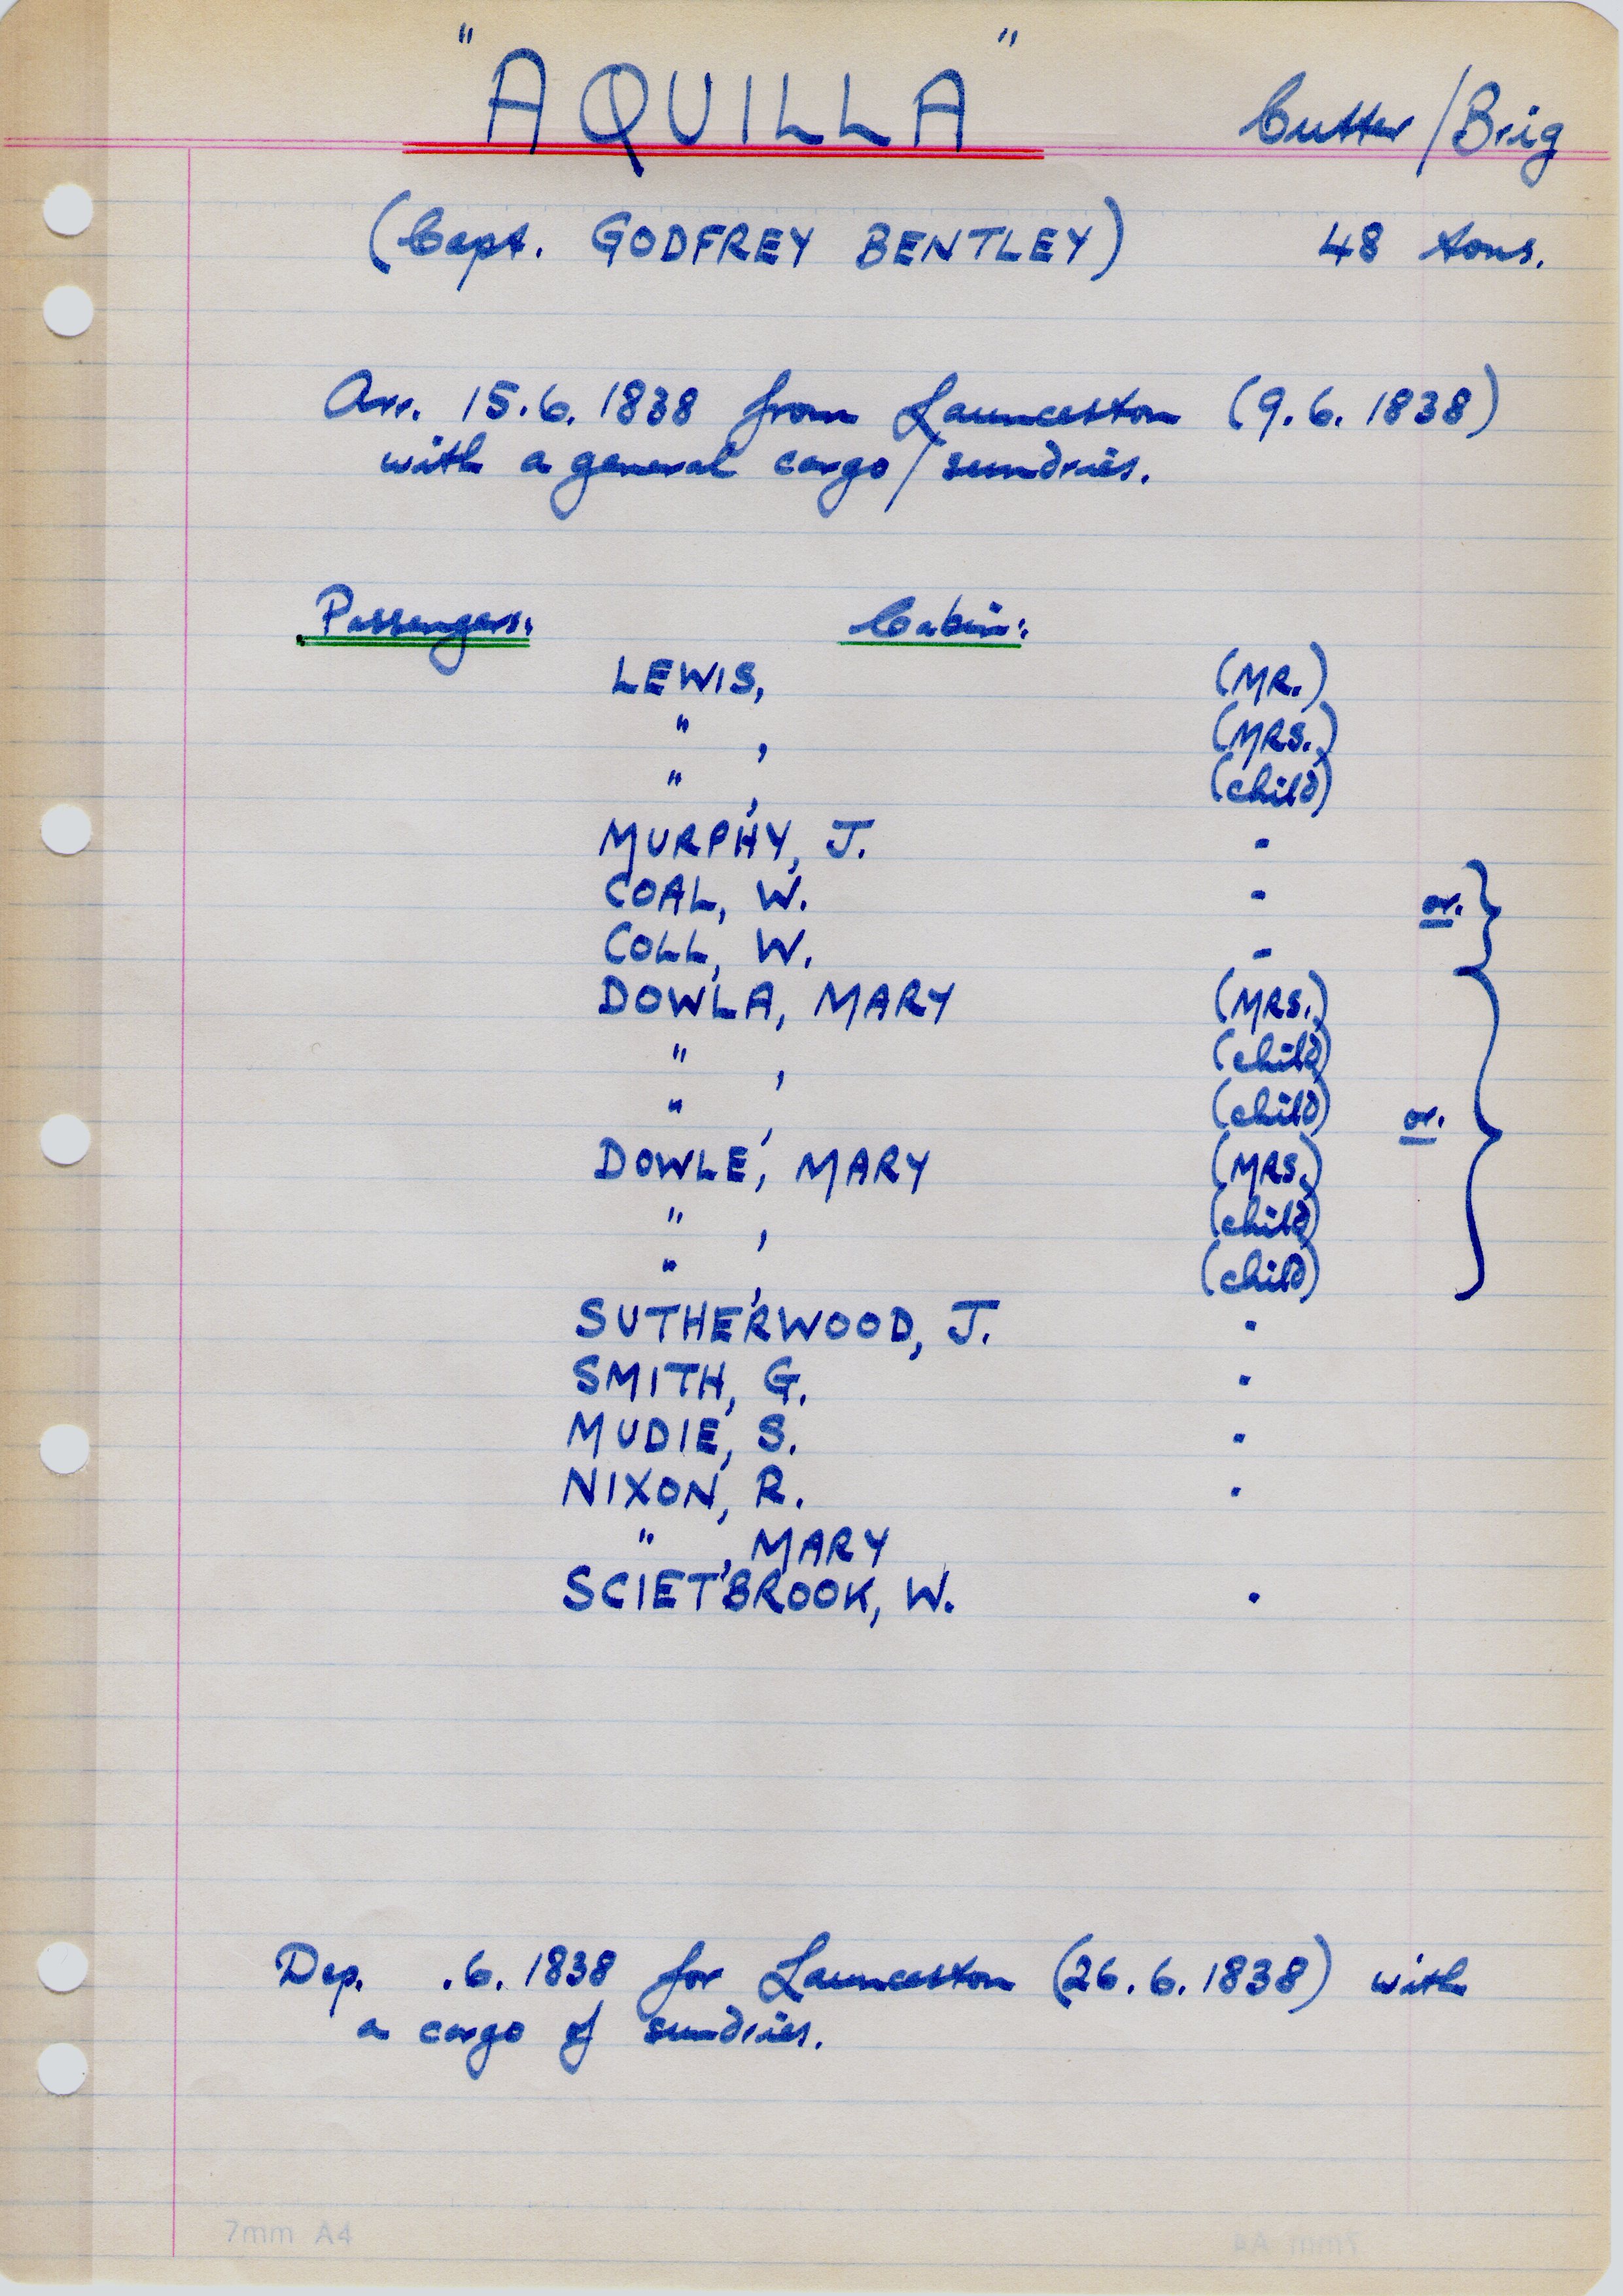 "AQUILLA" Cutter/Brig
(Capt. GODFREY BENTLEY) 48 tons.
Arr. 15.6.1838 from Launceston (9.6.1838)
with a general cargo/sundries.
Passengers: Cabin:
LEWIS, (MR.)
" , (MRS.)
" , (child)
MURPHY, J. -
COAL, W. - or.
COLL, W. -
DOWLA, MARY (MRS.)
" , (child)
" , (child) or.
DOWLE, MARY (MRS.)
" , (child)
" , (child)
SUTHERWOOD, J. -
SMITH, G. -
MUDIE, S. -
NIXON, R. -
" , MARY
SCIETBROOK, W. -
Dep. .6.1838 for Launceston (26.6.1838) with
a cargo of sundries.
7mm A4